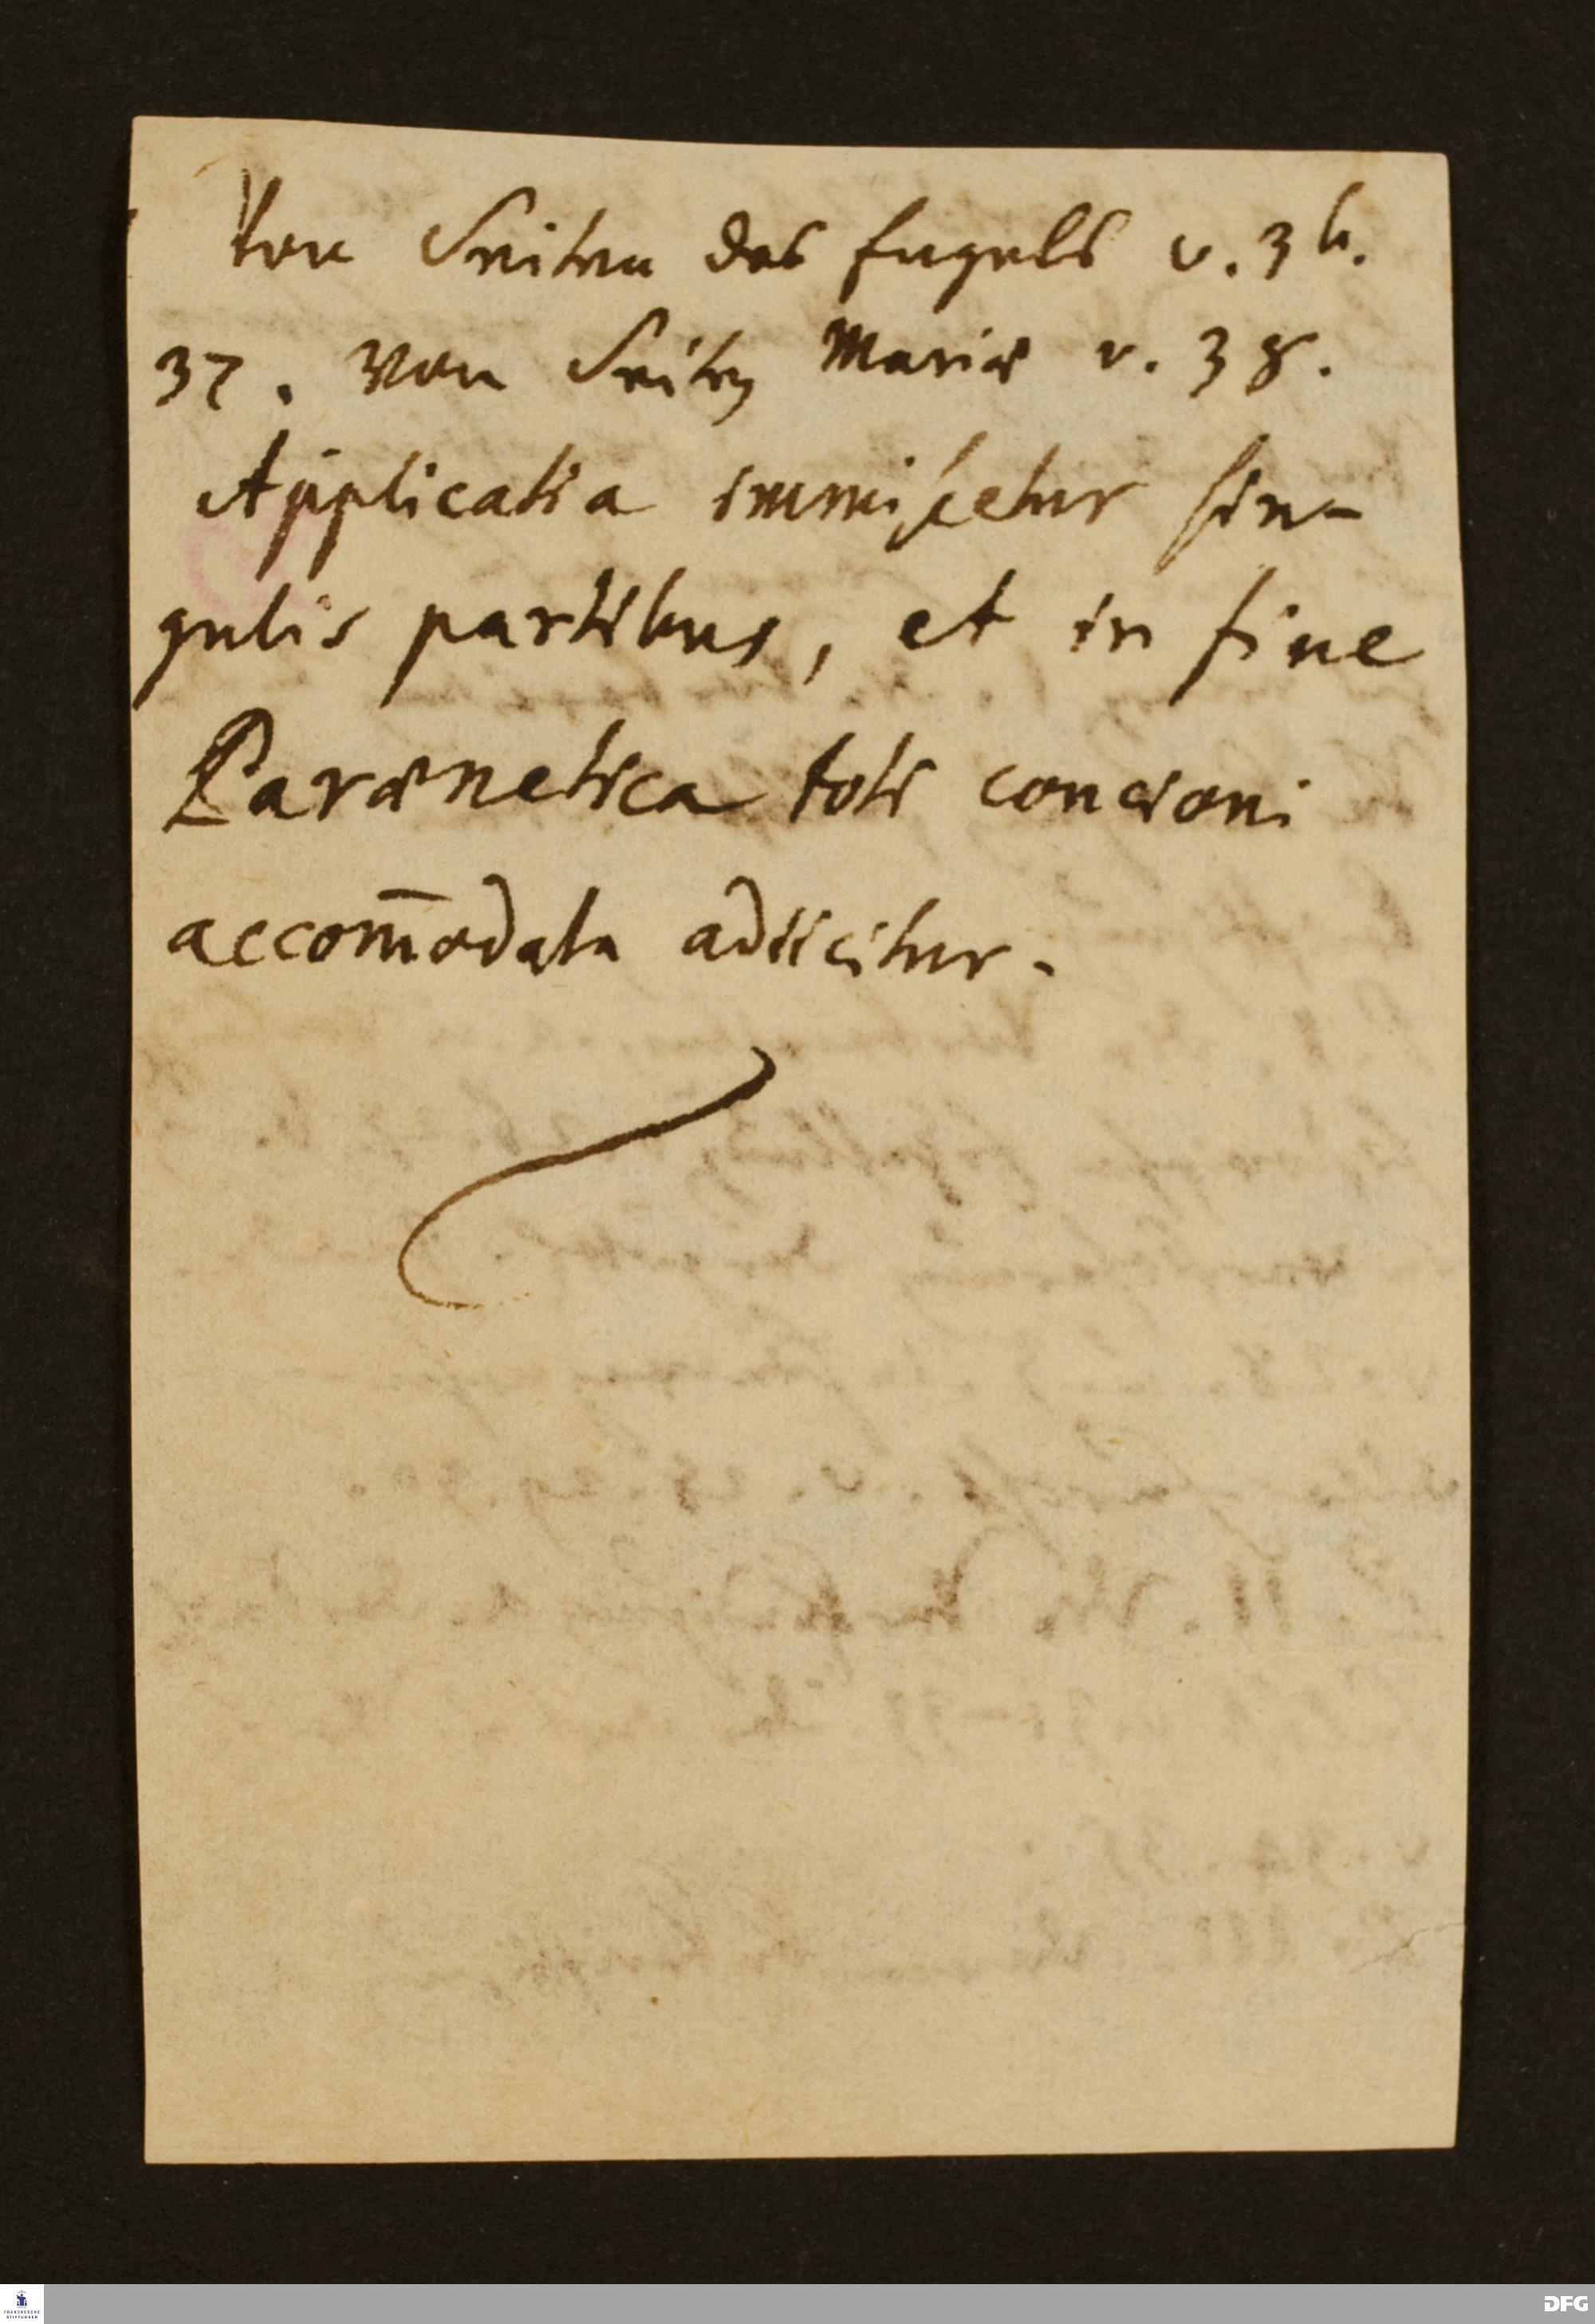 Von Seiten des Engels v. 36.
37. Von Seiten Mariæ v. 38.
Applicatio immiscetur sin-
gulis partibus, et in fine
Parænetica toti concioni
accom̄odata adiicitur.
FRANCKESCHE
STIFTUNGEN
DFG